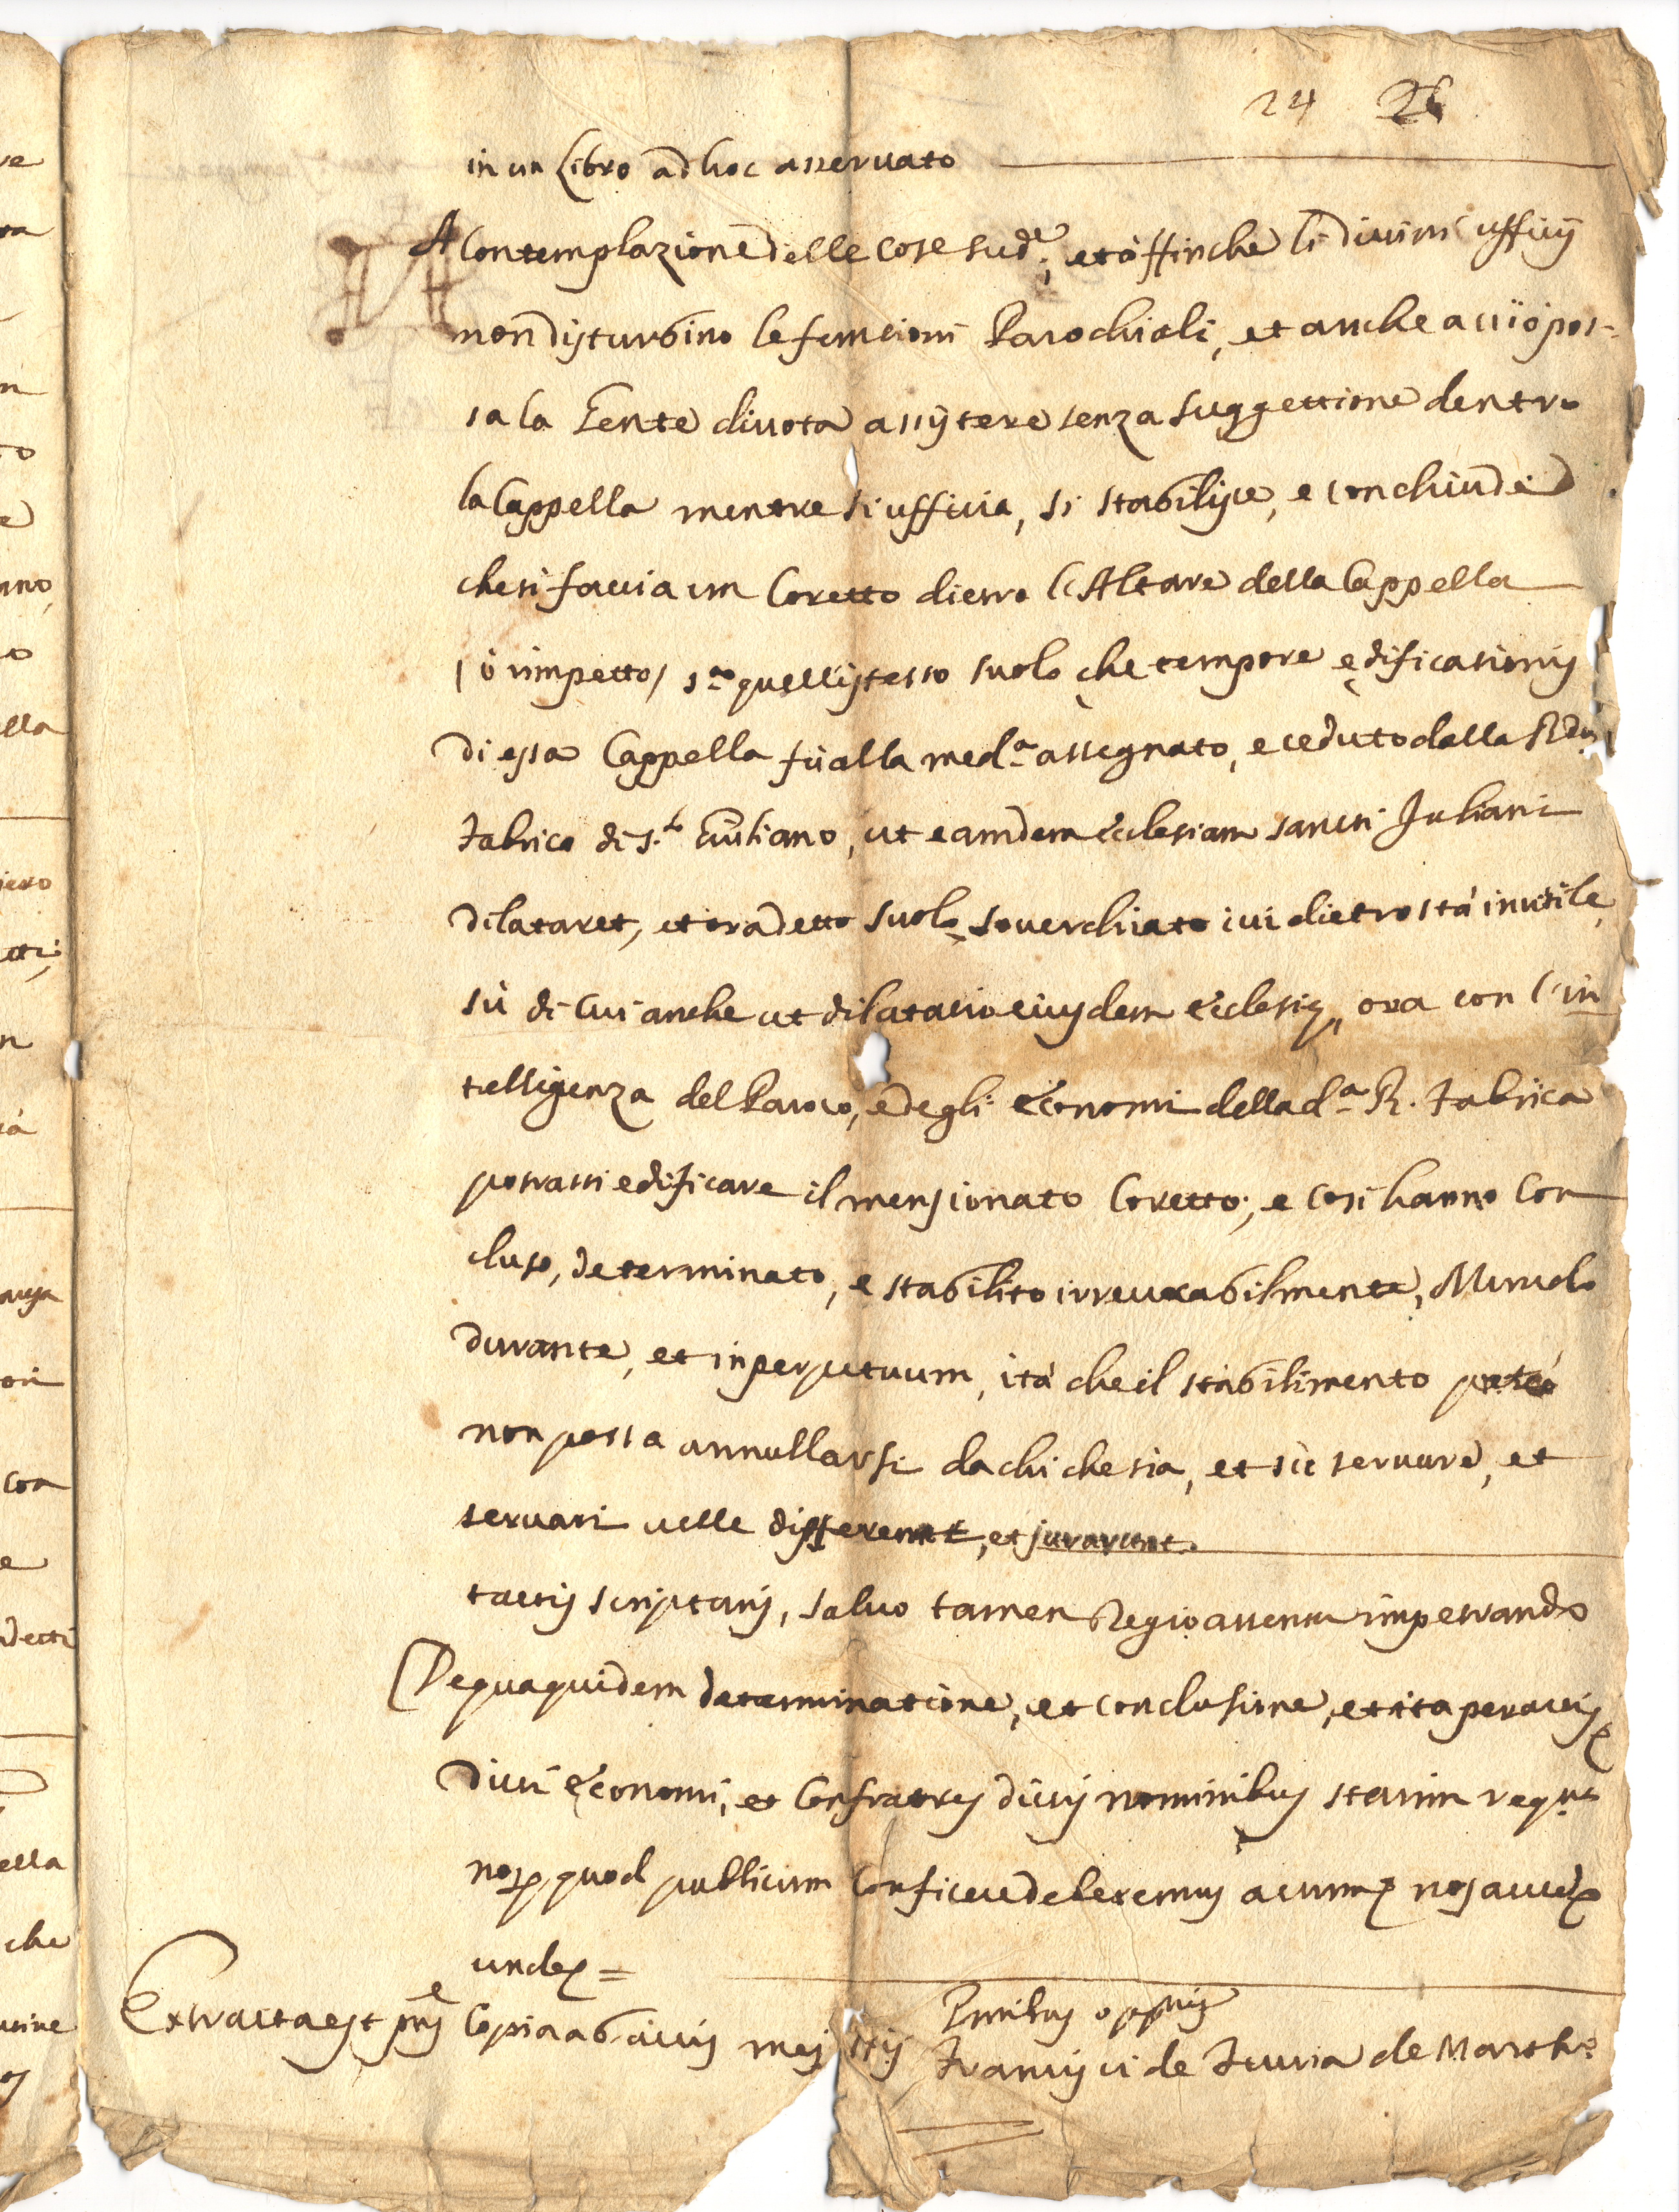 24 26
in un Libro ad hoc asservato
A Contemplazione delle cose sud.e, et affinche li divini ufficij
non disturbino le funtioni Parochiali, et anche acciò pos-
sa la Gente divota assistere senza suggettione dentro
la Cappella mentre si ufficia, si stabilisce, e conchiude
che si faccia un Coretto dietro l'Altare della Cappella
(ò rimpetto) s.a quell'istesso suolo che tempore ędificationis
di essa Cappella fù alla med.a assegnato, e ceduto dalla
fabrica di S.to Giuliano, ut eamdem Ecclesiam sancti Juliani
dilataret, et ora detto suolo soverchiato ivi dietro stà inutile,
sù di cui anche ut dilatatio eiusdem Ecclesię, ora con l'in
telligenza del Paroco, e degli Economi della d.a R. fabrica
potrassi edificare il mensionato Coretto; e così hanno con
cluso, determinato, e stabilito irrevocabilmente, Mundo
durante, et in perpetuum, ità che il stabilimento
non possa annullarsi da chi che sia, et sic servare, et
servari velle dixerunt, et jurarunt.
tactis scripturis, salvo tamen Regio assensu impetrando
De qua quidem determinatione, et conclusione, et ita peractis
Dicti Economi, et Confratres dictis nominibus statim
nos, quod publicum conficere deberemus actum nos autem
unde =
Extracta est pns Copia ab actis meis
Francisci de de Marth.